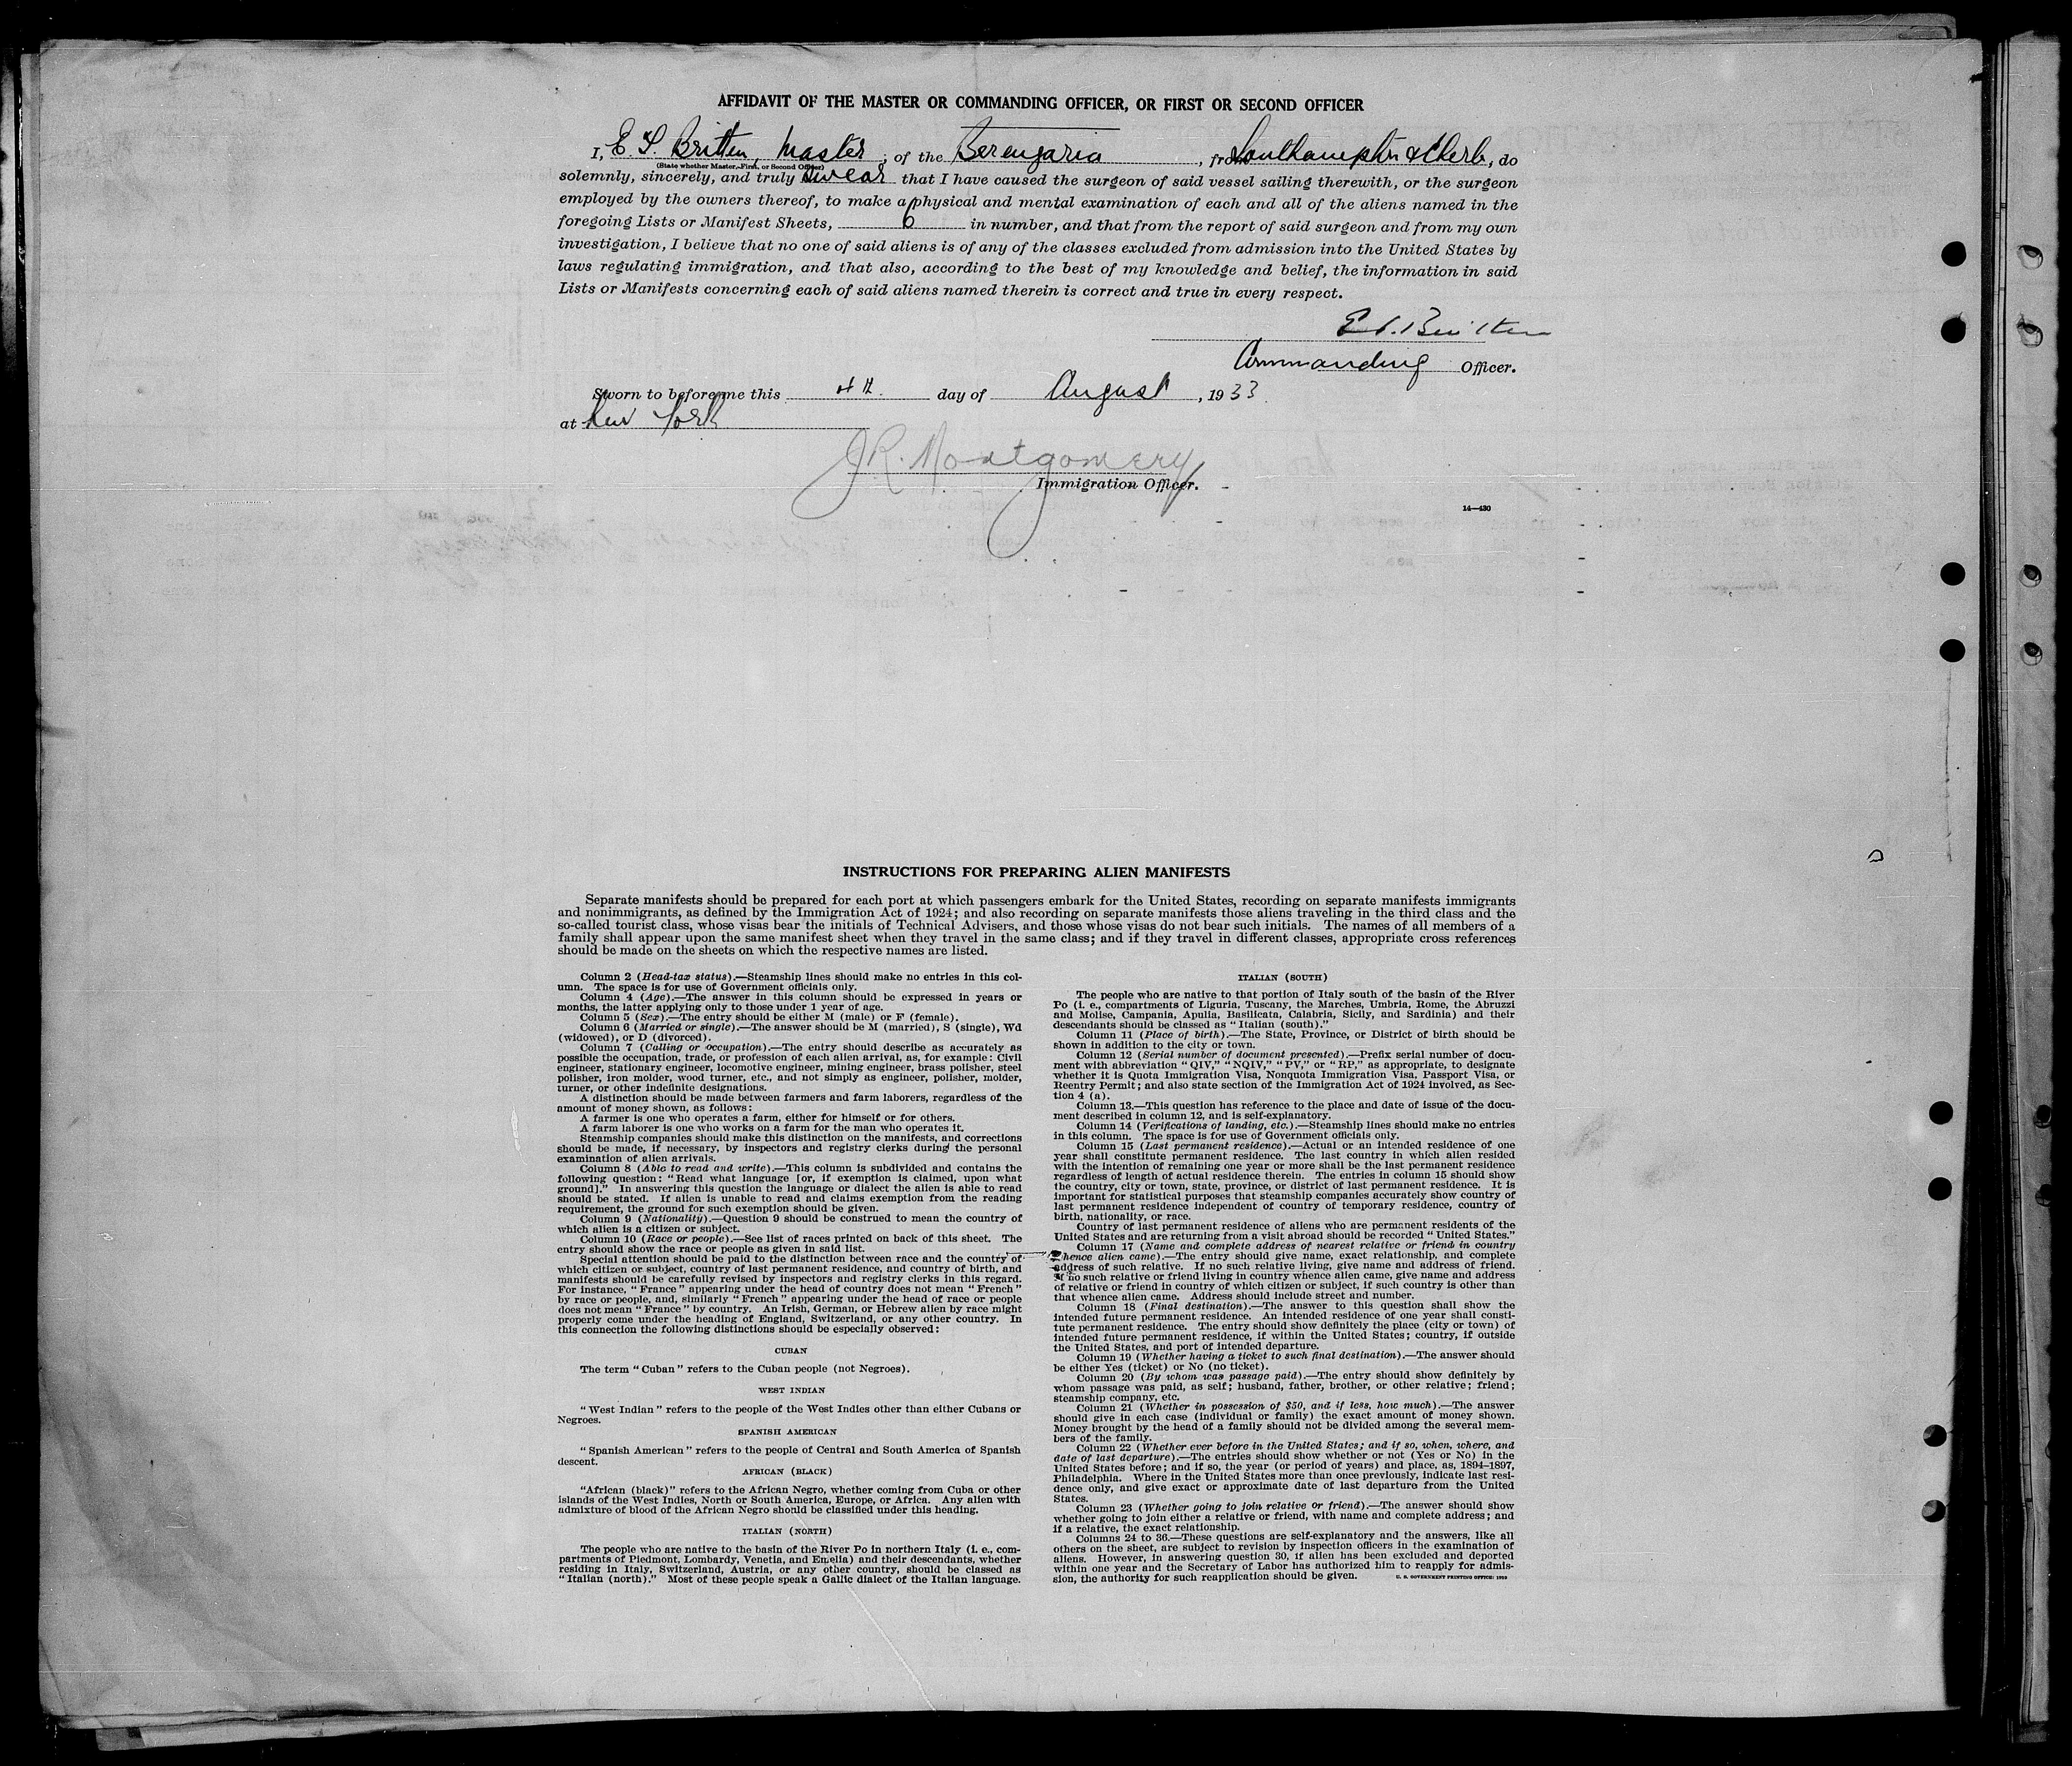 AFFIDAVIT OF THE MASTER OR COMMANDING OFFICER, OR FIRST OR SECOND OFFICER
I, E. S. Britten, Master, of the Berengaria, from Southampton & Cherb, do
(State whether Master, First, or Second Officer)
solemnly, sincerely, and truly swear that I have caused the surgeon of said vessel sailing therewith, or the surgeon
employed by the owners thereof, to make a physical and mental examination of each and all of the aliens named in the
foregoing Lists or Manifest Sheets, 6 in number, and that from the report of said surgeon and from my own
investigation, I believe that no one of said aliens is of any of the classes excluded from admission into the United States by
laws regulating immigration, and that also, according to the best of my knowledge and belief, the information in said
Lists or Manifests concerning each of said aliens named therein is correct and true in every respect.
E. S. Britten
Commanding Officer.
Sworn to before me this 4th. day of August, 1933
at New York
J.R. Montgomery
Immigration Officer.
14—430
INSTRUCTIONS FOR PREPARING ALIEN MANIFESTS
Separate manifests should be prepared for each port at which passengers embark for the United States, recording on separate manifests immigrants
and nonimmigrants, as defined by the Immigration Act of 1924; and also recording on separate manifests those aliens traveling in the third class and the
so-called tourist class, whose visas bear the initials of Technical Advisers, and those whose visas do not bear such initials. The names of all members of a
family shall appear upon the same manifest sheet when they travel in the same class; and if they travel in different classes, appropriate cross references
should be made on the sheets on which the respective names are listed.
Column 2 (Head-tax status).—Steamship lines should make no entries in this col-
umn. The space is for use of Government officials only.
Column 4 (Age).—The answer in this column should be expressed in years or
months, the latter applying only to those under 1 year of age.
Column 5 (Sex).—The entry should be either M (male) or F (female).
Column 6 (Married or single).—The answer should be M (married), S (single), Wd
(widowed), or D (divorced).
Column 7 (Calling or occupation).—The entry should describe as accurately as
possible the occupation, trade, or profession of each alien arrival, as, for example: Civil
engineer, stationary engineer, locomotive engineer, mining engineer, brass polisher, steel
polisher, iron molder, wood turner, etc., and not simply as engineer, polisher, molder,
turner, or other indefinite designations.
A distinction should be made between farmers and farm laborers, regardless of the
amount of money shown, as follows:
A farmer is one who operates a farm, either for himself or for others.
A farm laborer is one who works on a farm for the man who operates it.
Steamship companies should make this distinction on the manifests, and corrections
should be made, if necessary, by inspectors and registry clerks during the personal
examination of alien arrivals.
Column 8 (Able to read and write).—This column is subdivided and contains the
following question: "Read what language [or, if exemption is claimed, upon what
ground]." In answering this question the language or dialect the alien is able to read
should be stated. If alien is unable to read and claims exemption from the reading
requirement, the ground for such exemption should be given.
Column 9 (Nationality).—Question 9 should be construed to mean the country of
which alien is a citizen or subject.
Column 10 (Race or people).—See list of races printed on back of this sheet. The
entry should show the race or people as given in said list.
Special attention should be paid to the distinction between race and the country of
which citizen or subject, country of last permanent residence, and country of birth, and
manifests should be carefully revised by inspectors and registry clerks in this regard.
For instance, "France" appearing under the head of country does not mean "French"
by race or people, and, similarly "French" appearing under the head of race or people
does not mean "France" by country. An Irish, German, or Hebrew alien by race might
properly come under the heading of England, Switzerland, or any other country. In
this connection the following distinctions should be especially observed:
CUBAN
The term "Cuban" refers to the Cuban people (not Negroes).
WEST INDIAN
"West Indian" refers to the people of the West Indies other than either Cubans or
Negroes.
SPANISH AMERICAN
"Spanish American" refers to the people of Central and South America of Spanish
descent.
AFRICAN (BLACK)
"African (black)" refers to the African Negro, whether coming from Cuba or other
islands of the West Indies, North or South America, Europe, or Africa. Any alien with
admixture of blood of the African Negro should be classified under this heading.
ITALIAN (NORTH)
The people who are native to the basin of the River Po in northern Italy (i. e., com-
partments of Piedmont, Lombardy, Venetia, and Emelia) and their descendants, whether
residing in Italy, Switzerland, Austria, or any other country, should be classed as
"Italian (north)." Most of these people speak a Gallic dialect of the Italian language.
ITALIAN (SOUTH)
The people who are native to that portion of Italy south of the basin of the River
Po (i. e., compartments of Liguria, Tuscany, the Marches, Umbria, Rome, the Abruzzi
and Molise, Campania, Apulia, Basilicata, Calabria, Sicily, and Sardinia) and their
descendants should be classed as "Italian (south)."
Column 11 (Place of birth).—The State, Province, or District of birth should be
shown in addition to the city or town.
Column 12 (Serial number of document presented).—Prefix serial number of docu-
ment with abbreviation "QIV," "NQIV," "PV," or "RP," as appropriate, to designate
whether it is Quota Immigration Visa, Nonquota Immigration Visa, Passport Visa, or
Reentry Permit; and also state section of the Immigration Act of 1924 involved, as Sec-
tion 4 (a).
Column 13.—This question has reference to the place and date of issue of the docu-
ment described in column 12, and is self-explanatory.
Column 14 (Verifications of landing, etc.).—Steamship lines should make no entries
in this column. The space is for use of Government officials only.
Column 15 (Last permanent residence).—Actual or an intended residence of one
year shall constitute permanent residence. The last country in which alien resided
with the intention of remaining one year or more shall be the last permanent residence
regardless of length of actual residence therein. The entries in column 15 should show
the country, city or town, state, province, or district of last permanent residence. It is
important for statistical purposes that steamship companies accurately show country of
last permanent residence independent of country of temporary residence, country of
birth, nationality, or race.
Country of last permanent residence of aliens who are permanent residents of the
United States and are returning from a visit abroad should be recorded "United States."
Column 17 (Name and complete address of nearest relative or friend in country
whence alien came).—The entry should give name, exact relationship, and complete
address of such relative. If no such relative living, give name and address of friend.
If no such relative or friend living in country whence alien came, give name and address
of relative or friend in country of which citizen or subject, if such country is other than
that whence alien came. Address should include street and number.
Column 18 (Final destination).—The answer to this question shall show the
intended future permanent residence. An intended residence of one year shall consti-
tute permanent residence. The entry should show definitely the place (city or town) of
intended future permanent residence, if within the United States; country, if outside
the United States, and port of intended departure.
Column 19 (Whether having a ticket to such final destination).—The answer should
be either Yes (ticket) or No (no ticket).
Column 20 (By whom was passage paid).—The entry should show definitely by
whom passage was paid, as self; husband, father, brother, or other relative; friend;
steamship company, etc.
Column 21 (Whether in possession of $50, and if less, how much).—The answer
should give in each case (individual or family) the exact amount of money shown.
Money brought by the head of a family should not be divided among the several mem-
bers of the family.
Column 22 (Whether ever before in the United States; and if so, when, where, and
date of last departure).—The entries should show whether or not (Yes or No) in the
United States before; and if so, the year (or period of years) and place, as, 1894–1897,
Philadelphia. Where in the United States more than once previously, indicate last resi-
dence only, and give exact or approximate date of last departure from the United
States.
Column 23 (Whether going to join relative or friend).—The answer should show
whether going to join either a relative or friend, with name and complete address; and
if a relative, the exact relationship.
Columns 24 to 36.—These questions are self-explanatory and the answers, like all
others on the sheet, are subject to revision by inspection officers in the examination of
aliens. However, in answering question 30, if alien has been excluded and deported
within one year and the Secretary of Labor has authorized him to reapply for admis-
sion, the authority for such reapplication should be given.
U. S. GOVERNMENT PRINTING OFFICE: